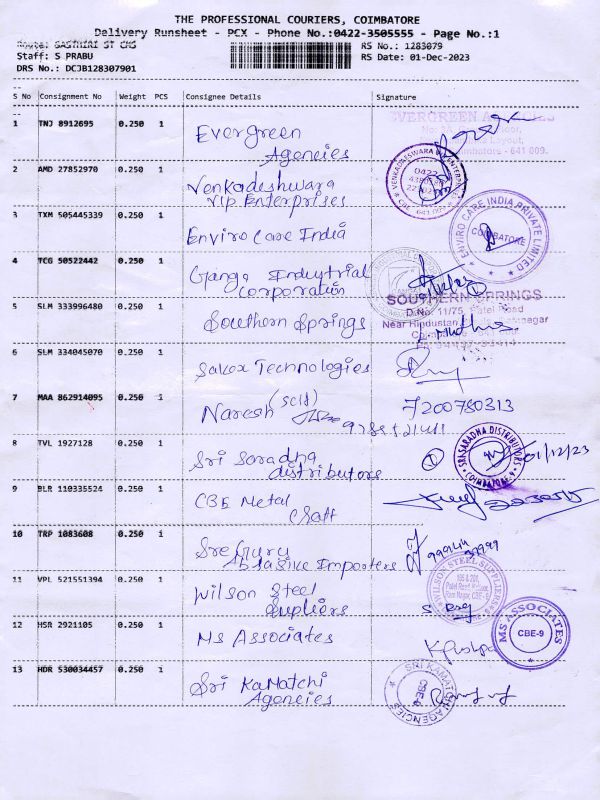 THE PROFESSIONAL COURIERS, COIMBATORE
Delivery Runsheet - PCX - Phone No.:0422-3505555 - Page No.:1
Route: GASTHIRI ST CMS
RS No.: 1283079
Staff: S PRABU
RS Date: 01-Dec-2023
DRS No.: DCJB128307901
S No Consignment No Weight PCS Consignee Details Signature
1 TNJ 8912695 0.250 1 Evergreen Agencies
EVERGREEN
Coimbatore - 641 009.
2 AMD 27852970 0.250 1 Venkadeshwara Vip Enterprises
0422
3 TXM 505445339 0.250 1 Enviro Care India
ENVIRO CARE INDIA PRIVATE LIMITED
COIMBATORE
4 TCG 50522442 0.250 1 Ganga Industrial Corporation
5 SLM 333996480 0.250 1 Southern Springs
SOUTHERN SPRINGS
D.No. 11/75, Patel Road
Near Hindustan
6 SLM 334045070 0.250 1 Salox Technologies
7 MAA 862914095 0.250 1 Naresh (Self)
7200780313
8 TVL 1927128 0.250 1 Sri Saradha distributors
SRI SARADHA DISTRIBUTORS
COIMBATORE-9
01/12/23
9 BLR 110335524 0.250 1 CBE Metal Craft
10 TRP 1083608 0.250 1 Sre Guru Abrasive Importers
11 VPL 521551394 0.250 1 Wilson Steel Supliers
WILSON STEEL SUPPLIERS
Ram Nagar, CBE-9
12 HSR 2921105 0.250 1 Ms Associates
MS ASSOCIATES
CBE-9
13 HDR 530034457 0.250 1 Sri Kamatchi Agencies
SRI KAMATCHI AGENCIES
CBE-9